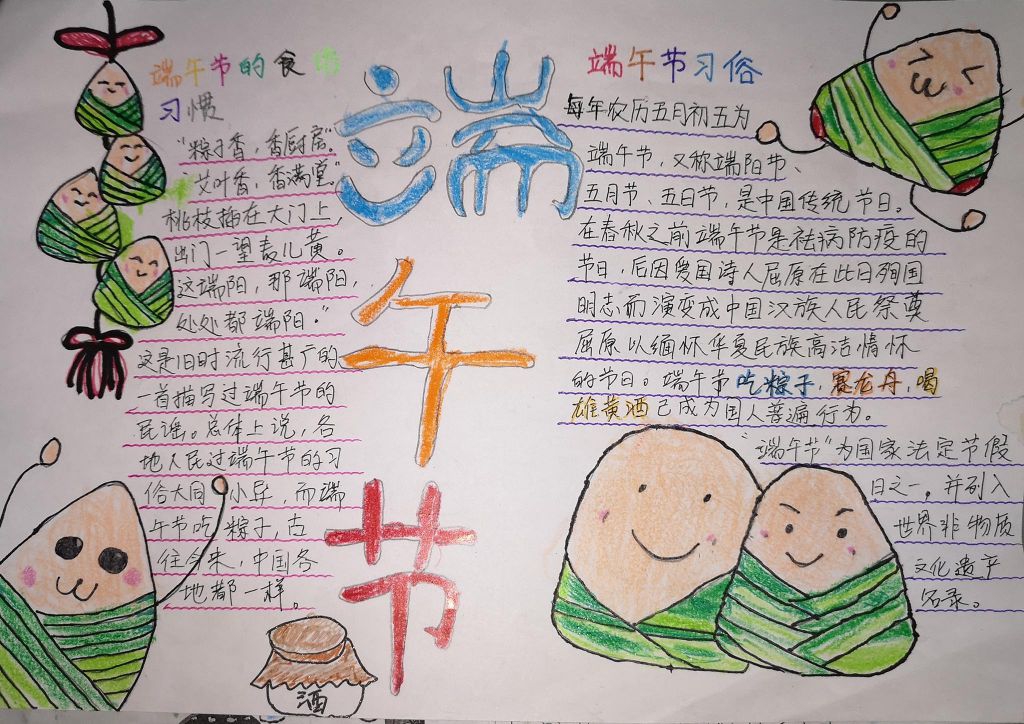 端午节的食俗
习惯
"粽子香，香厨房。"
"艾叶香，香满堂。"
桃枝插在大门上，
出门一望麦儿黄。
这端阳，那端阳，
处处都端阳。"
这是旧时流行甚广的
一首描写过端午节的
民谣。总体上说，各
地人民过端午节的习
俗大同小异，而端
午节吃粽子，古
往今来，中国各
地都一样。
端
午
节
酒
端午节习俗
每年农历五月初五为
端午节，又称端阳节、
五月节、五日节，是中国传统节日。
在春秋之前端午节是祛病防疫的
节日，后因爱国诗人屈原在此日殉国
明志而演变成中国汉族人民祭奠
屈原以缅怀华夏民族高洁情怀
的节日。端午节吃粽子，赛龙舟，喝
雄黄酒已成为国人普遍行为。
"端午节"为国家法定节假
日之一，并列入
世界非物质
文化遗产
名录。